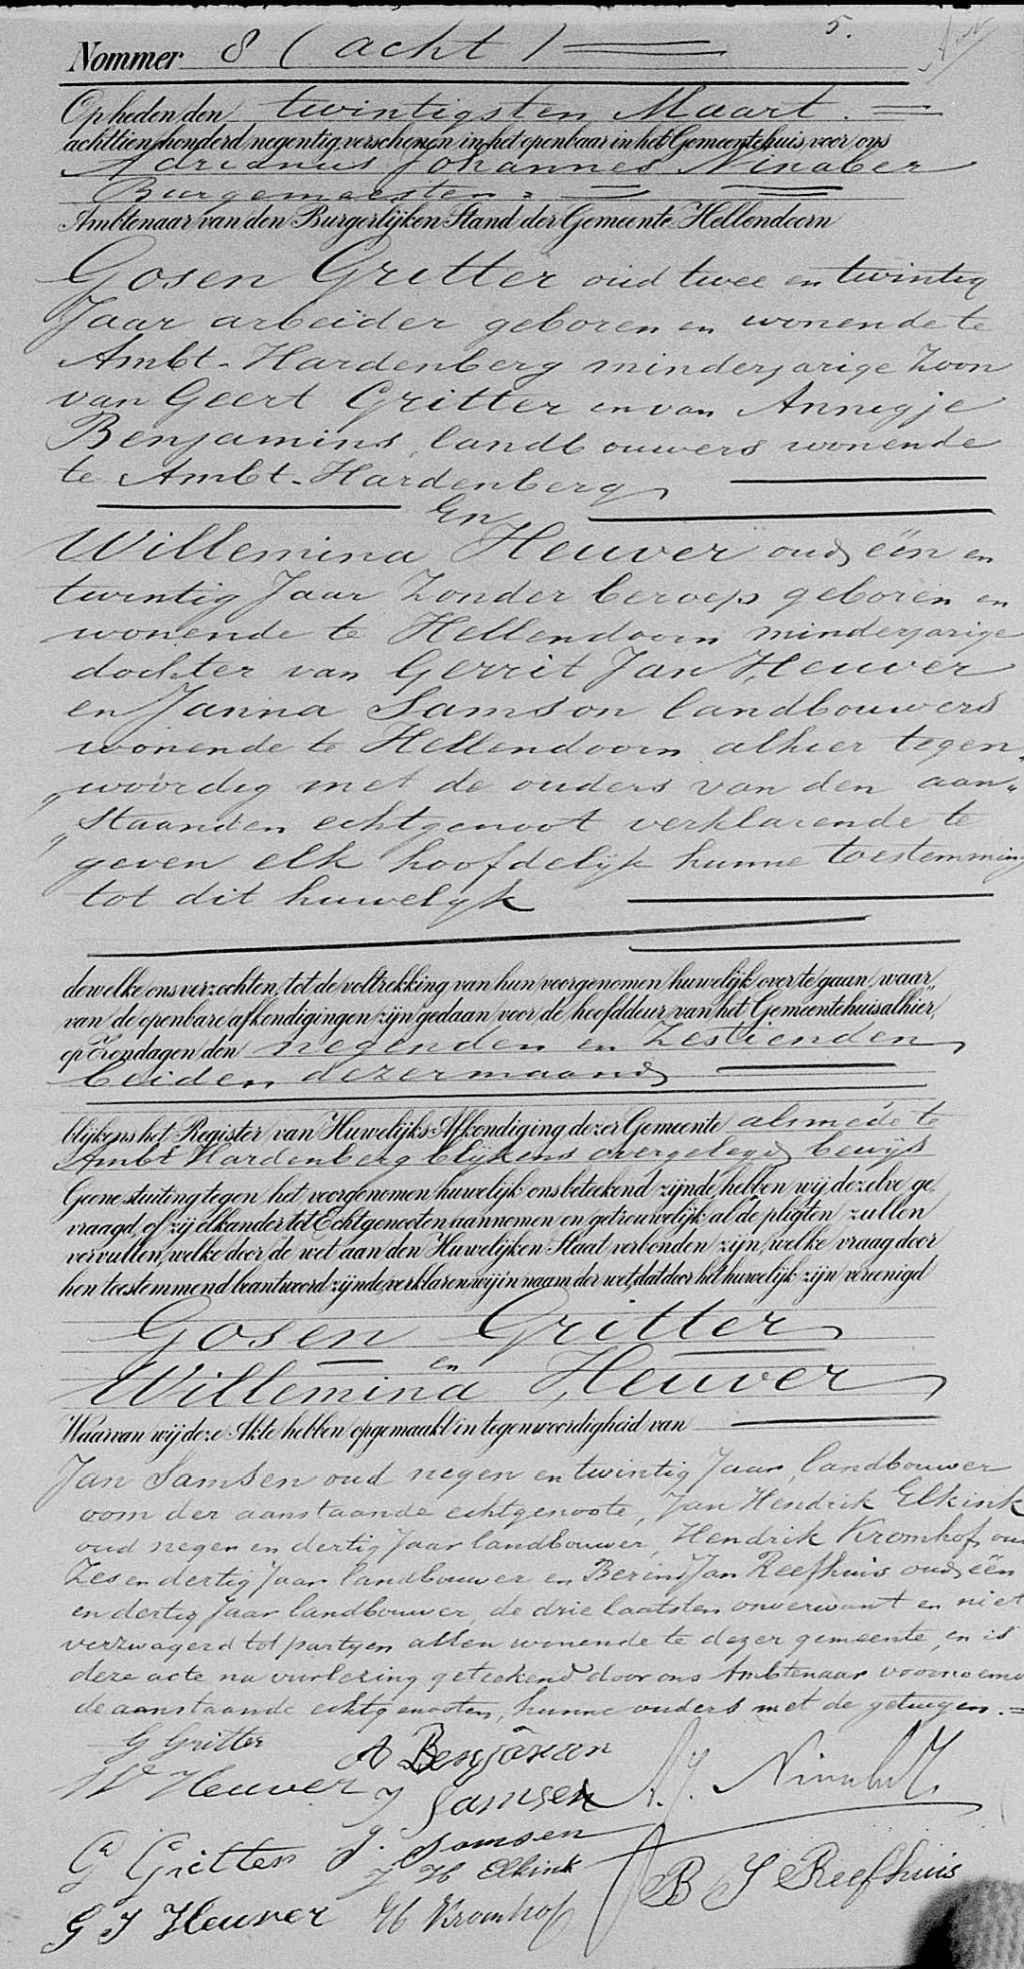 5.
Nommer 8 (acht)
Op heden den twintigsten Maart.
achttien honderd negentig, verschenen in het openbaar in het Gemeentehuis voor ons
Adrianus Johannes Ninaber
Burgemeester
Ambtenaar van den Burgerlijken Stand der Gemeente Hellendoorn
Gosen Gritter oud twee en twintig
Jaar arbeider geboren en wonende te
Ambt-Hardenberg minderjarige Zoon
van Geert Gritter en van Annigje
Benjamins, landbouwers wonende
te Ambt-Hardenberg
En
Willemina Heuver oud één en
twintig Jaar Zonder beroep geboren en
wonende te Hellendoorn minderjarige
dochter van Gerrit Jan Heuver
en Janna Samson landbouwers
wonende te Hellendoorn alhier tegen„
„woordig met de ouders van den aan„
„staanden echtgenoot verklarende te
geven elk hoofdelijk hunne toestemming
tot dit huwelijk
dewelke ons verzochten, tot de voltrekking van hun voorgenomen huwelijk over te gaan, waar„
van de openbare afkondigingen zijn gedaan voor de hoofddeur van het Gemeentehuis alhier,
op Zondagen den negenden en Zestienden
beiden dezer maand
blijkens het Register van Huwelijks-Afkondiging dezer Gemeente alsmede te
Ambt Hardenberg blijkens overgelegd bewijs
Geene stuiting tegen het voorgenomen huwelijk ons beteekend zijnde, hebben wij dezelve ge„
vraagd, of zij elkander tot Echtgenooten aannemen en getrouwelijk al de pligten zullen
vervullen, welke door de wet aan den Huwelijken Staat verbonden zijn, welke vraag door
hen toestemmend beantwoord zijnde, verklaren wij in naam der wet, dat door het huwelijk zijn vereenigd
Gosen Gritter
en
Willemina Heuver
Waarvan wij deze Akte hebben opgemaakt in tegenwoordigheid van
Jan Samsen oud negen en twintig Jaar, landbouwer
oom der aanstaande echtgenoote, Jan Hendrik Elkink
oud negen en dertig Jaar landbouwer, Hendrik Kromhof, oud
Zes en dertig Jaar landbouwer en Berend Jan Reefhuis oud één
en dertig Jaar landbouwer, de drie laatsten onverwant en niet
verzwagerd tot partyen allen wonende te dezer gemeente, en is
deze acte na voorlezing geteekend door ons Ambtenaar voornoemd
de aanstaande echtgenooten, hunne ouders met de getuigen.
G Gritter A Benjamin
W Heuver J Samsen A. J. Ninaber
G Gritter J. Samsen
J H Elkink B J Reefhuis
G J Heuver H Kromhof